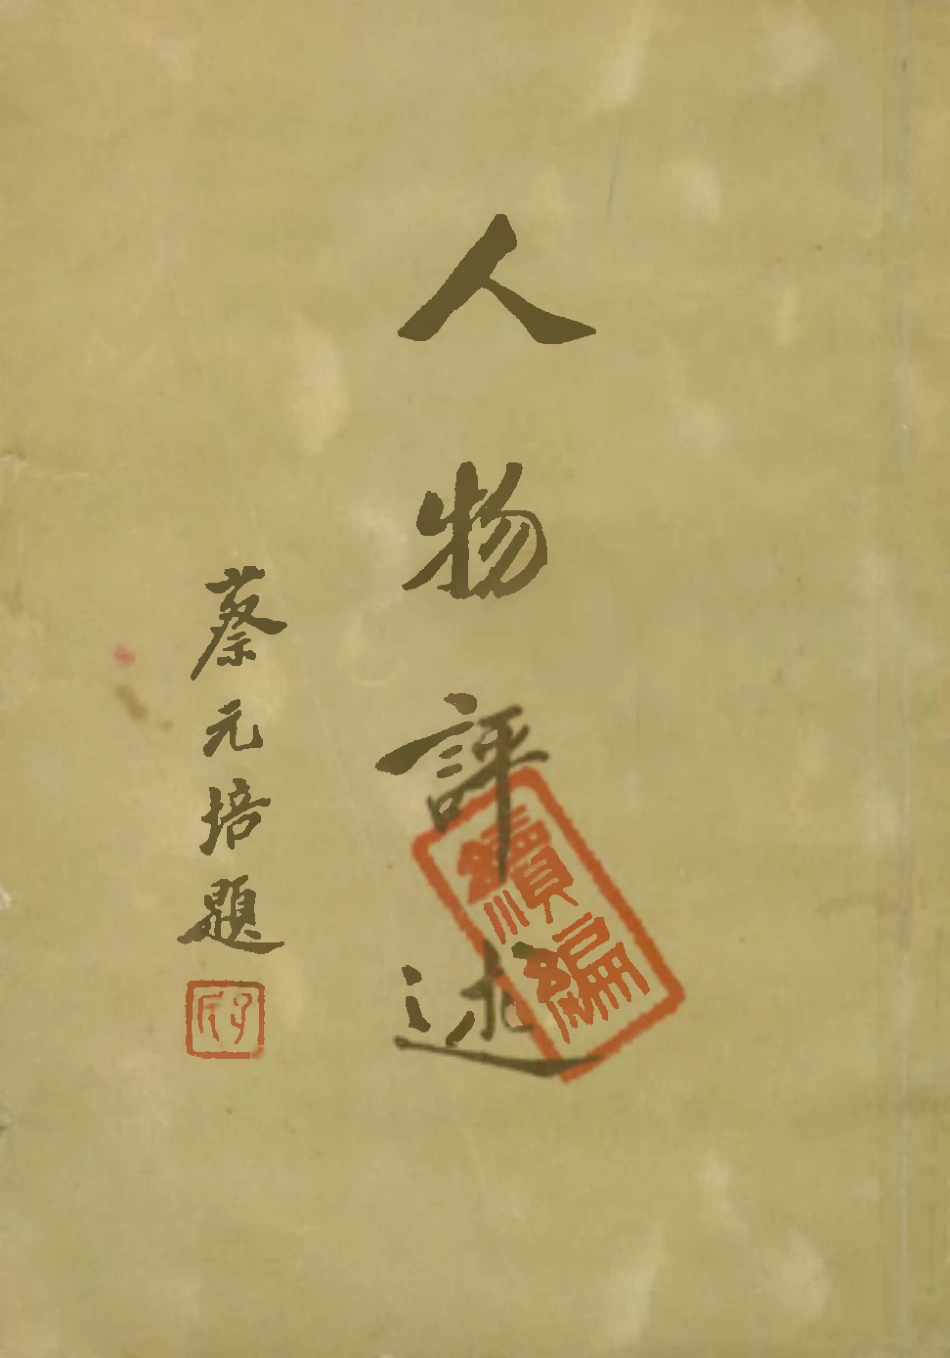 人物評述
蔡元培題
續編